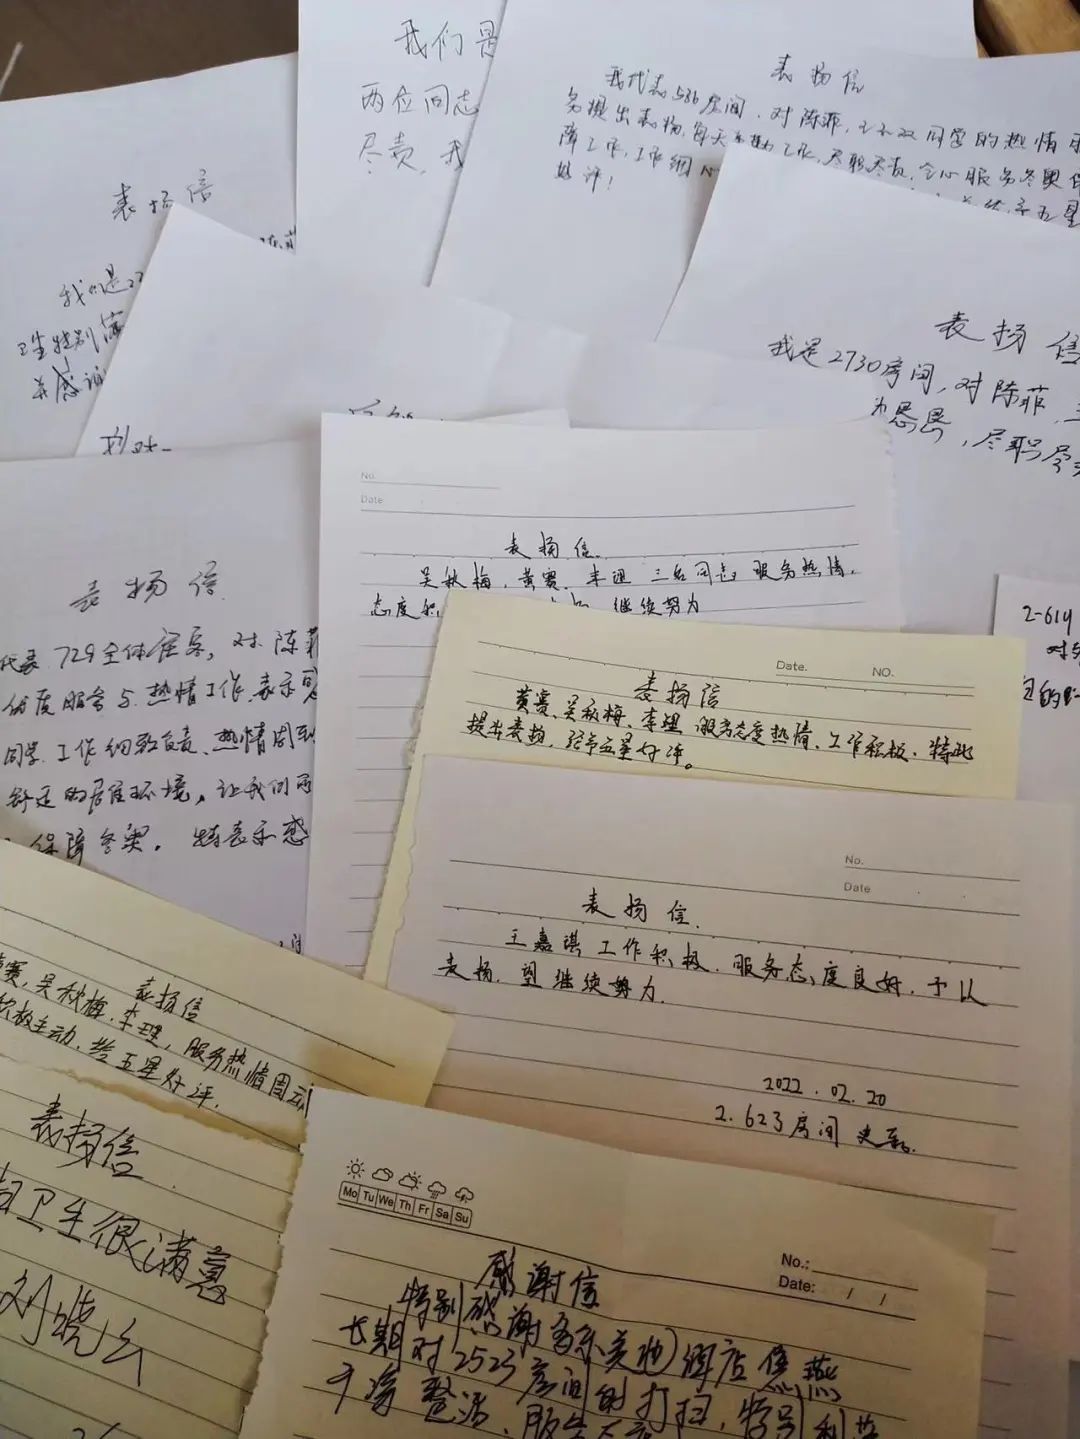 我们是
两位同志
尽责,我
表扬信
我代表586房间,对陈菲,
同学的热情
务提出表扬,每天
工作,尽职尽责,全心服务冬奥保
障工作,工作细心
五星
好评!
表扬信
我们是27
卫生特别满
并感谢
表扬信
我是2730房间,对陈菲,
为恳恳,尽职尽责
表扬信
代表729全体住客,对陈菲
优质服务与热情工作,表示感
同学工作细致负责、热情周到
舒适的居住环境,让我们
保障冬奥。特表示感
No.
Date
表扬信.
吴秋梅,黄赛,李翌三名同志服务热情,
态度积
继续努力
2-614
对
Date. NO.
表扬信
黄赛、吴秋梅、李翌服务态度热情、工作积极、特此
提出表扬,给予五星好评。
No.
Date
表扬信.
王嘉琪工作积极,服务态度良好,予以
表扬,望继续努力.
2022.02.20
2.623房间
表扬信
赛,吴秋梅,李翌,服务热情周到
积极主动,给五星好评.
表扬信
卫生很满意
刘晓云
Mo Tu We Th Fr Sa Su
No.:
Date: / /
感谢信
特别感谢多乐美地酒店焦燕
长期对2523房间的打扫,特别
干净整洁、服务